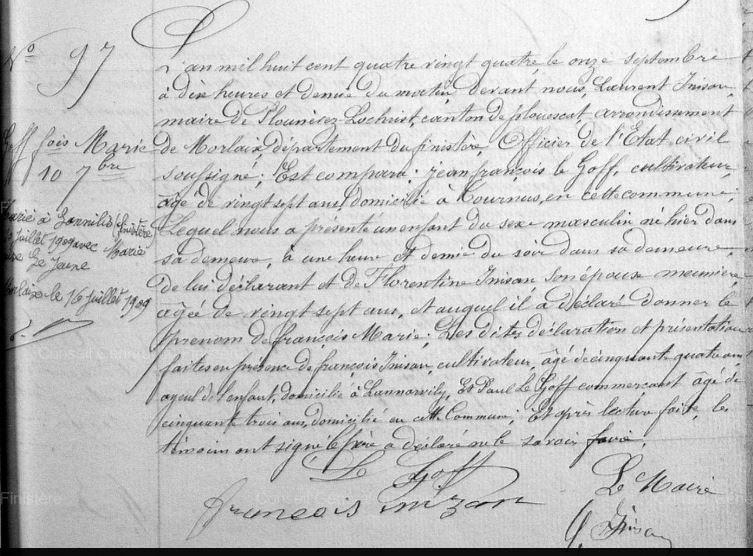 N° 97
Goff fois Marie
10 7bre
Marié à Lanvilis (finistère
juillet 1909 avec Marie
Le Jeune
Morlaix le 16 juillet 1909
L'an mil huit cent quatre vingt quatre le onze septembre
à dix heures et demie du matin, devant nous, Laurent Inisan,
maire de Plounévez-Lochrist, canton de plouescat, arrondissement
de Morlaix, département du finistère, Officier de l'Etat civil
soussigné; Est comparu: jean françois le Goff, cultivateur,
âgé de vingt sept ans, domicilié à Tournus, en cette commune;
Lequel nous a présenté un enfant du sexe masculin né hier dans
sa demeure, à une heure et demie du soir dans sa demeure,
de lui déclarant et de Florentine Inisan son épouse meunière,
âgée de vingt sept ans, et auquel il a déclaré donner le
prénom de françois Marie; Les dites déclaration et présentation
faites en présence de françois Inisan, cultivateur, âgé de cinquante quatre ans
ayeul de l'enfant, domicilié à Lannorvily, Et Paul Le Goff commercant âgé de
cinquante trois ans, domicilié en cette Commune; Et après lecture faite, les
témoins ont signé le père a déclaré ne le savoir faire.
Le Goff
francois inizan
Le Maire
Inisan
Finistère
Conseil Gé